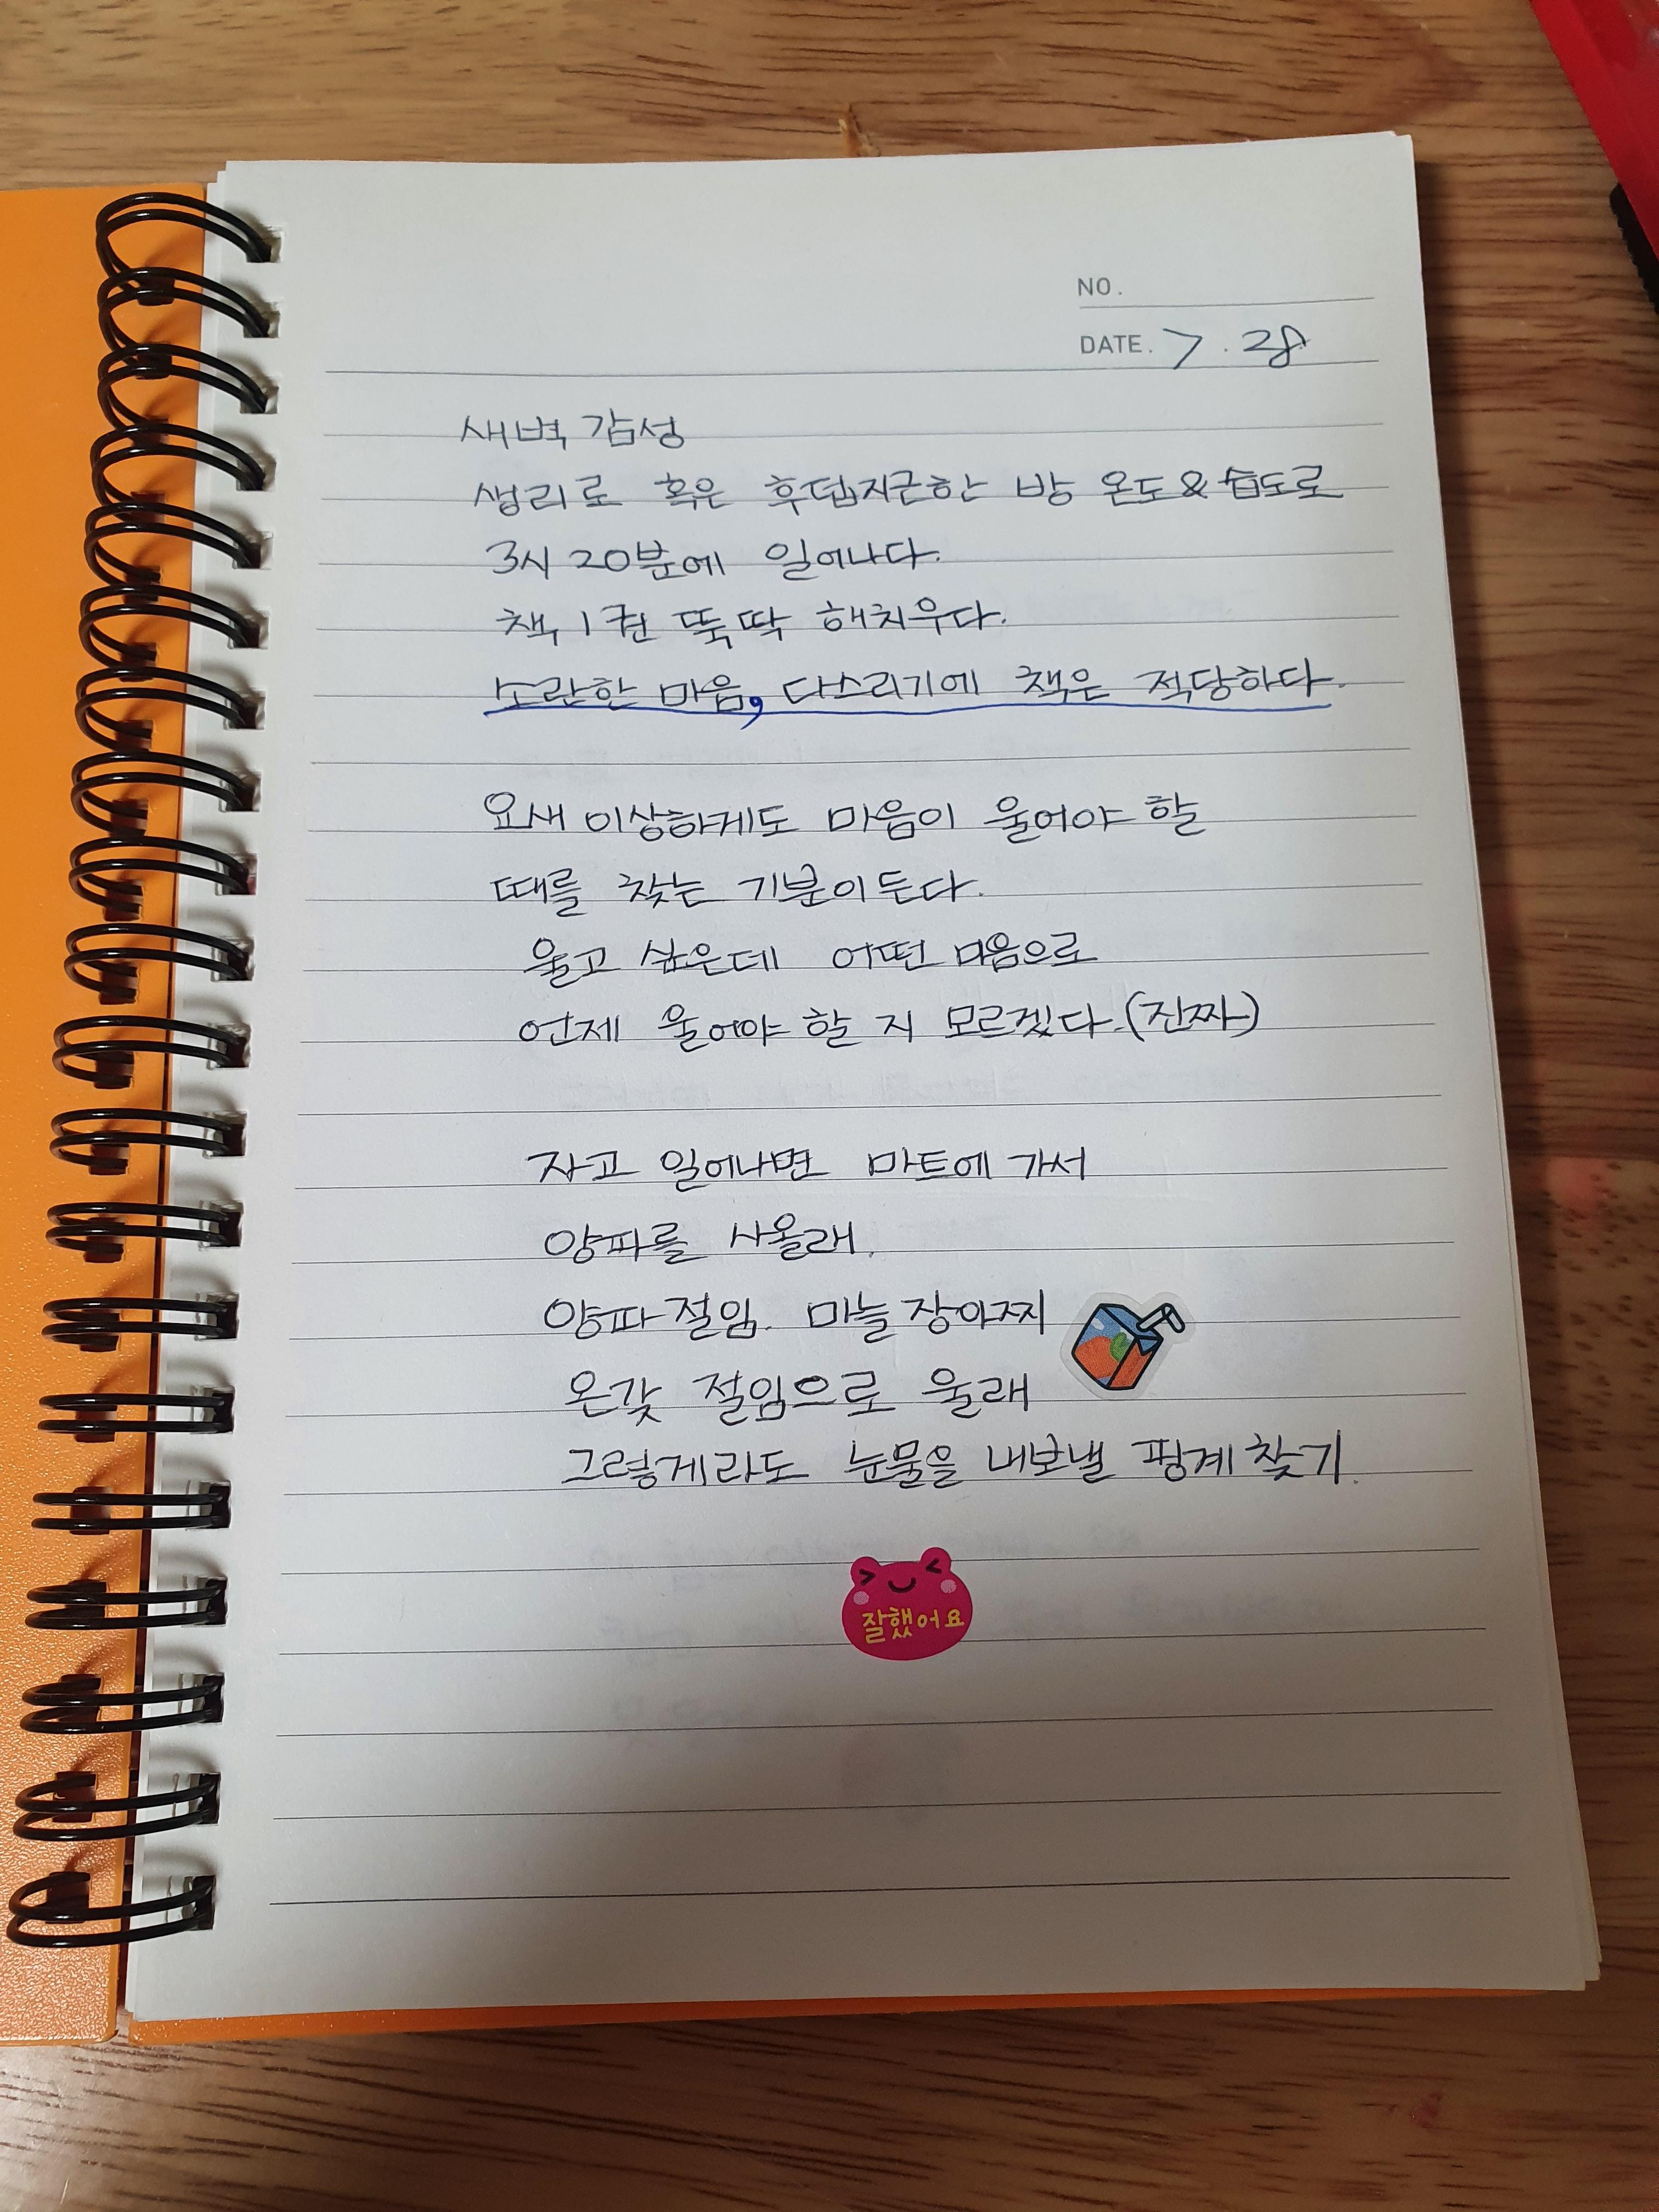 NO.
DATE. 7. 28
새벽 감성
생리로 혹은 후덥지근한 방 온도 & 습도로
3시 20분에 일어나다.
책 1권 뚝딱 해치우다.
소란한 마음, 다스리기에 책은 적당하다.
요새 이상하게도 마음이 울어야 할
때를 찾는 기분이 든다.
울고 싶은데 어떤 마음으로
언제 울어야 할 지 모르겠다. (진짜)
자고 일어나면 마트에 가서
양파를 사올래.
양파절임. 마늘장아찌
온갖 절임으로 울래
그렇게라도 눈물을 내보낼 핑계 찾기.
잘했어요